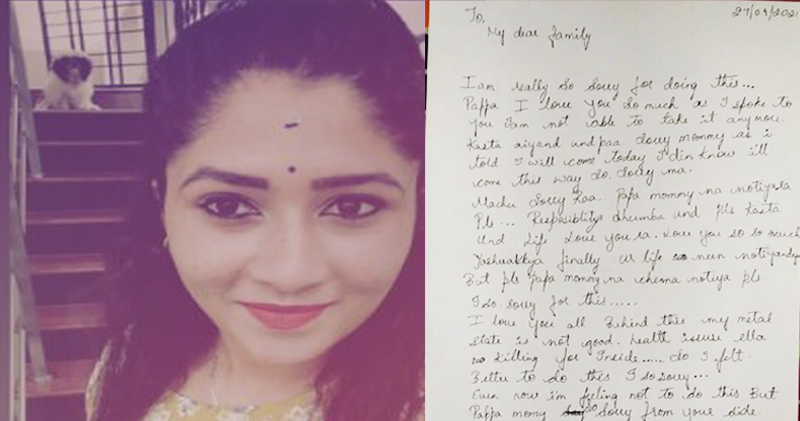 To,
27/09/2021
My dear family
I am really so sorry for doing this...
Pappa I love you so much as I spoke to
you I am not able to take it anymore.
Kasta aiyand undpaa. Sorry mommy as i
told I will come today I din know i'll
come this way so. Sorry ma.
Machu Sorry kaa. Papa mommy na notiyala
Pls... Resposiblitys dhumba und. pls kasta.
Und life Love you ra. Love you so so much
finally ur life nun notiyandu
But pls papa mommy na chenna notiya pls
I so. Sorry for this.....
I love you all Behind this my metal
state is not good. health issuse ella
killing for Inside..... so I felt.
Better to do this I so sorry...
Even now i'm feeling not to do this But
Pappa momy so sorry from your side.